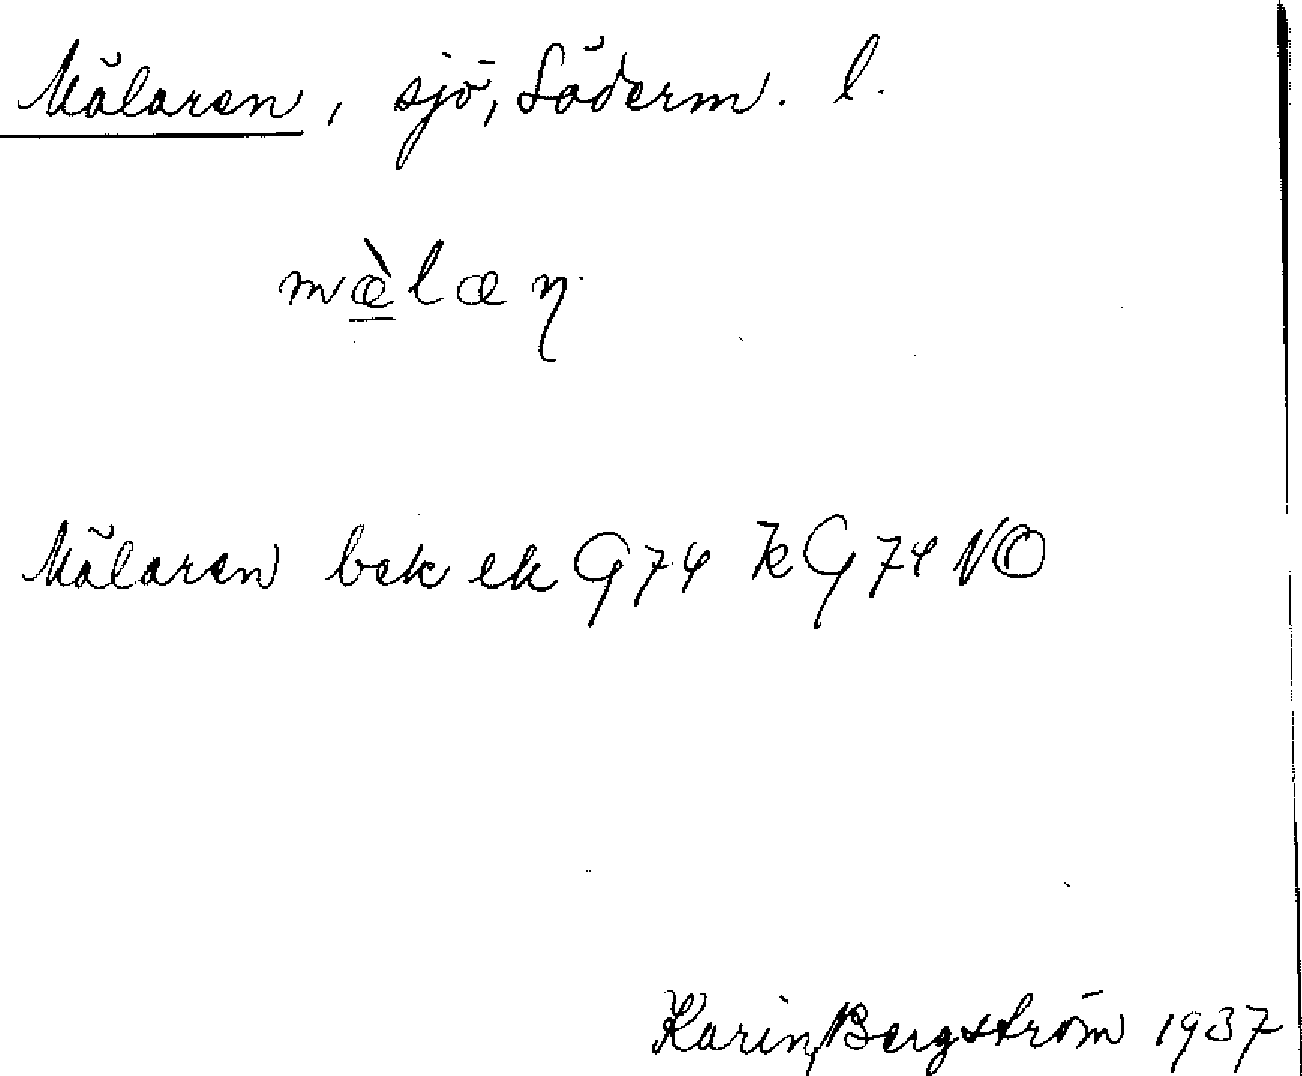 Mälaren, sjö, Söderm. l.
mæ̀læn
Mälaren bek ek G74 Jk G74 NO
Karin Bergström 1937